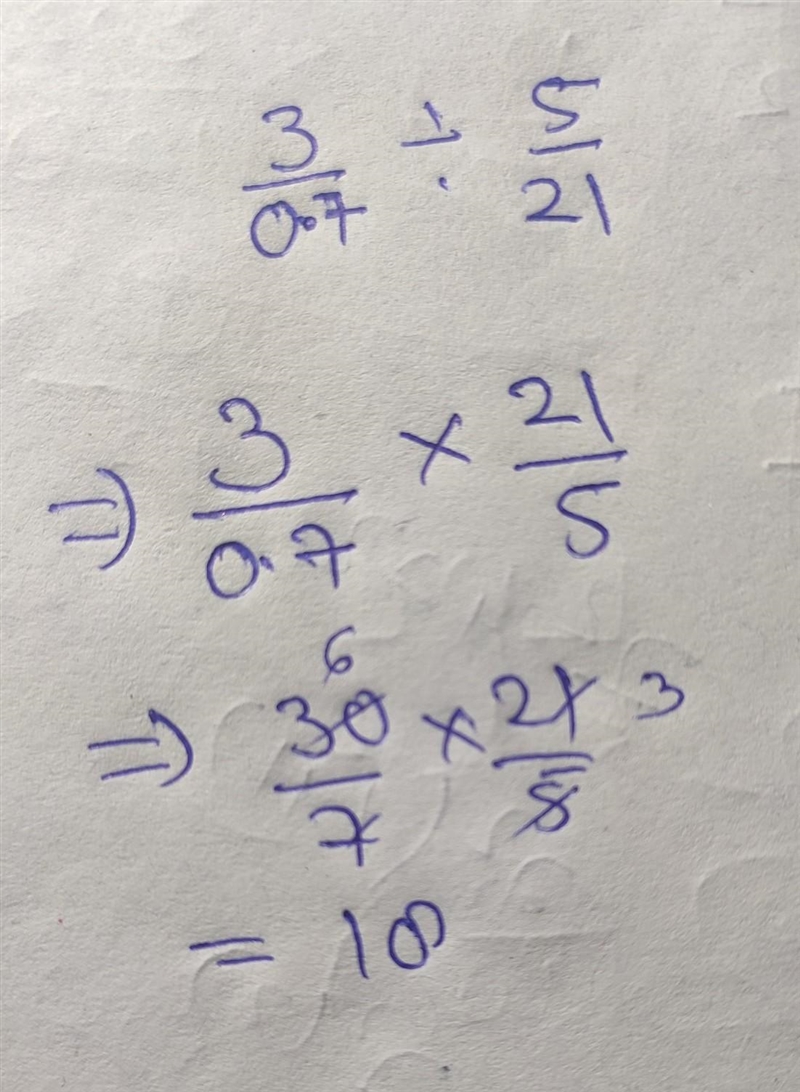 3/0.7 ÷ 5/21
⇒ 3/0.7 × 21/5
6
⇒ 30/7 × 21/5 3
= 18